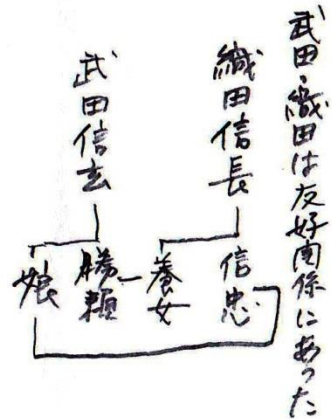 武田・織田は友好関係にあった
織田信長
信忠
養女
武田信玄
勝頼
娘